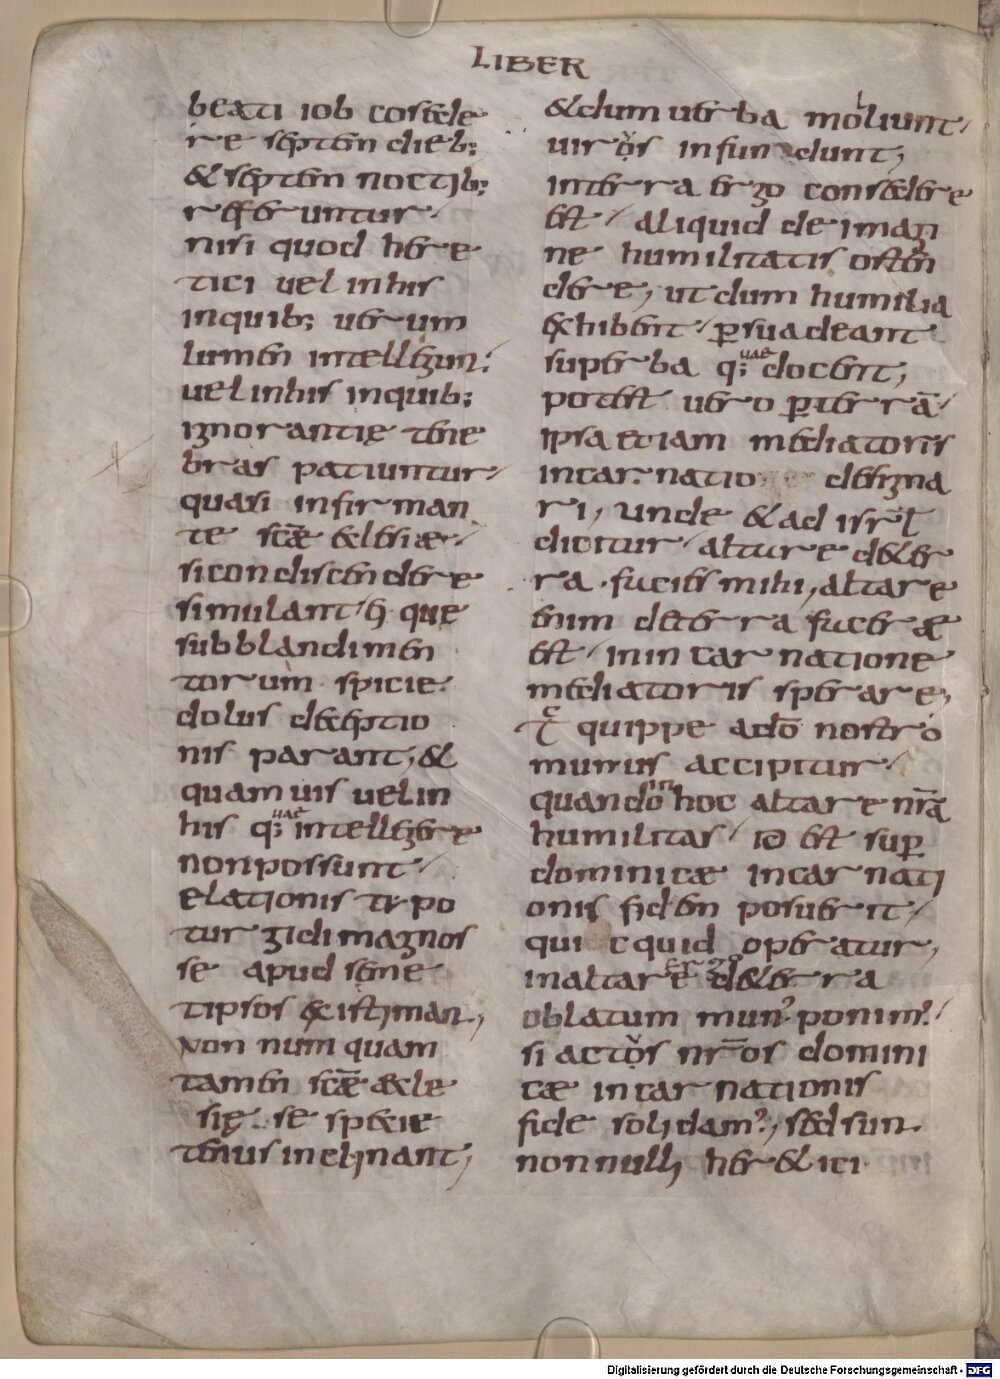 LIBER
beati iob consede
re septem dieb;
& septem noctib;
refferuntur
nisi quod here
tici vel in his
inquib; uerum
lumen intellegun.
uel in his inquib;
ignorantię tene
bras patiuntur
quasi infirman
te scæ eclesiæ
si condiscendere
simulant, que
sub blandimen
torum spicie
dolus deceptio
nis parant, &
quamuis uel in
his q; uae intellegere
non possunt
elationis typo
turgidi magnos
se apud seme
tipsos existiman.
Non numquam
tamen scæ æcle
się se specie
tenus inclinant,
& dum uerba moliunt
uiros infundunt,
in terra ergo consedere
est aliquid de imagi
ne humilitatis osten
dere, ut dum humilia
exhibent persuadeant
superba q; uae docent,
potest uero per terrā
ipsa etiam mediatoris
incarnatio designa
ri, unde & ad isrl
dicitur altare de ter
ra facies mihi, altare
enim de terra facere
est in incarnatione
mediatoris sperare,
tc quippe a dō nostro
munus accipitur
quando in hoc altare nrā
humilitas id est super
dominicæ incarnati
onis fidem posuerit
quicquid operatur,
in altare ergo de terra
oblatum mun' ponim'
si actos nros domini
cæ incarnationis
fide solidam', sed sun
non nulli heretici